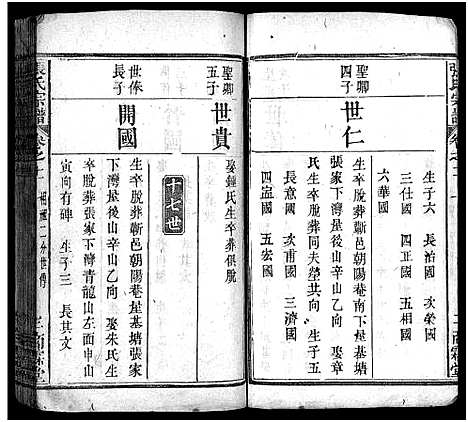 張氏宗譜
卷之十一
生子六 長治國 次榮國
三仕國 四正國 五相國
六華國
聖卿四子
世仁
生卒脫葬蘄邑朝陽菴星基塘
張家下灣是後山辛山乙向 娶章
氏生卒脫葬同夫塋共向 生子五
長意國 次甫國 三濟國
四盂國 五宏國
聖卿五子
世貴
娶鍾氏生卒葬俱脫
十七世
世俸長子
開國
生卒脫葬蘄邑朝陽菴星基塘張家
下灣是後山辛山乙向 娶朱氏生
卒脫葬張家下灣青龍山左面申山
寅向有碑 生子三 長其文
張氏宗譜
卷之十一